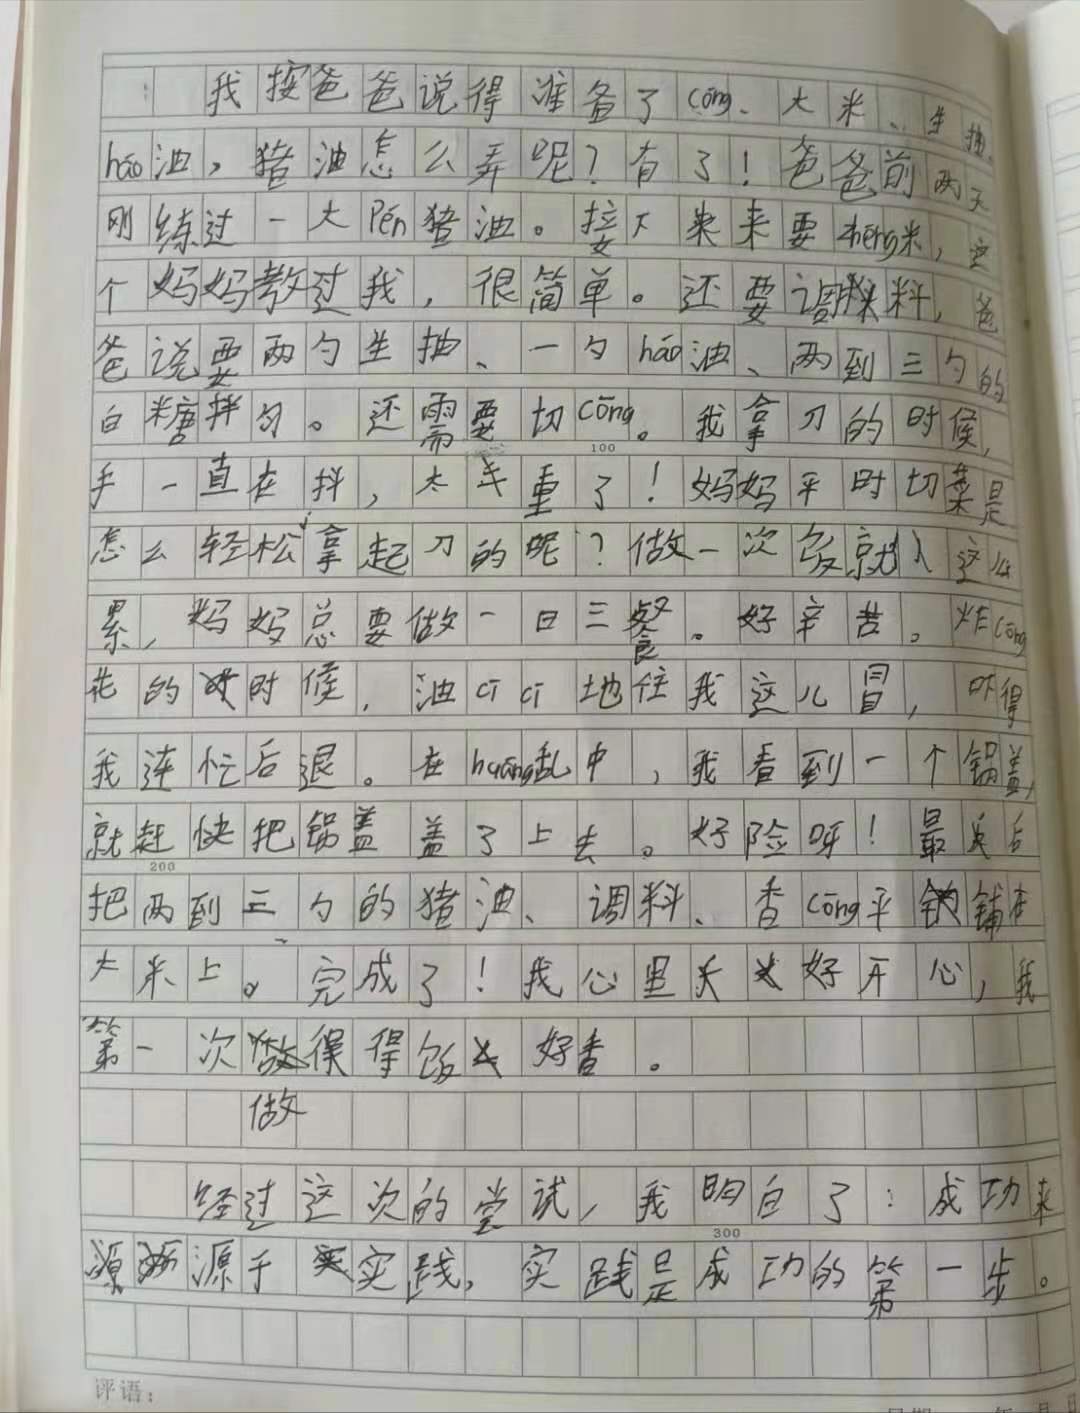 我按爸爸说得准备了cōng、大米、生抽、
háo油，猪油怎么弄呢？有了！爸爸前两天
刚练过一大Pén猪油。接下来要zhēng米，这
个妈妈教过我，很简单。还要调料，爸
爸说要两勺生抽、一勺háo油、两到三勺的
白糖拌匀。还需要切cōng。我拿刀的时候，
手一直在抖，太重了！妈妈平时切菜是
怎么轻松拿起刀的呢？做一次饭就这么
累，妈妈总要做一日三餐。好辛苦。炸cōng
花的时候，油cī cī地往我这儿冒，吓得
我连忙后退。在huāng乱中，我看到一个锅盖，
就赶快把锅盖盖了上去。好险呀！最后
把两到三勺的猪油、调料、香cōng平铺在
大米上。完成了！我心里头好开心，我
第一次做得饭好香。
经过这次的尝试，我明白了：成功来
源于实践，实践是成功的第一步。
评语：